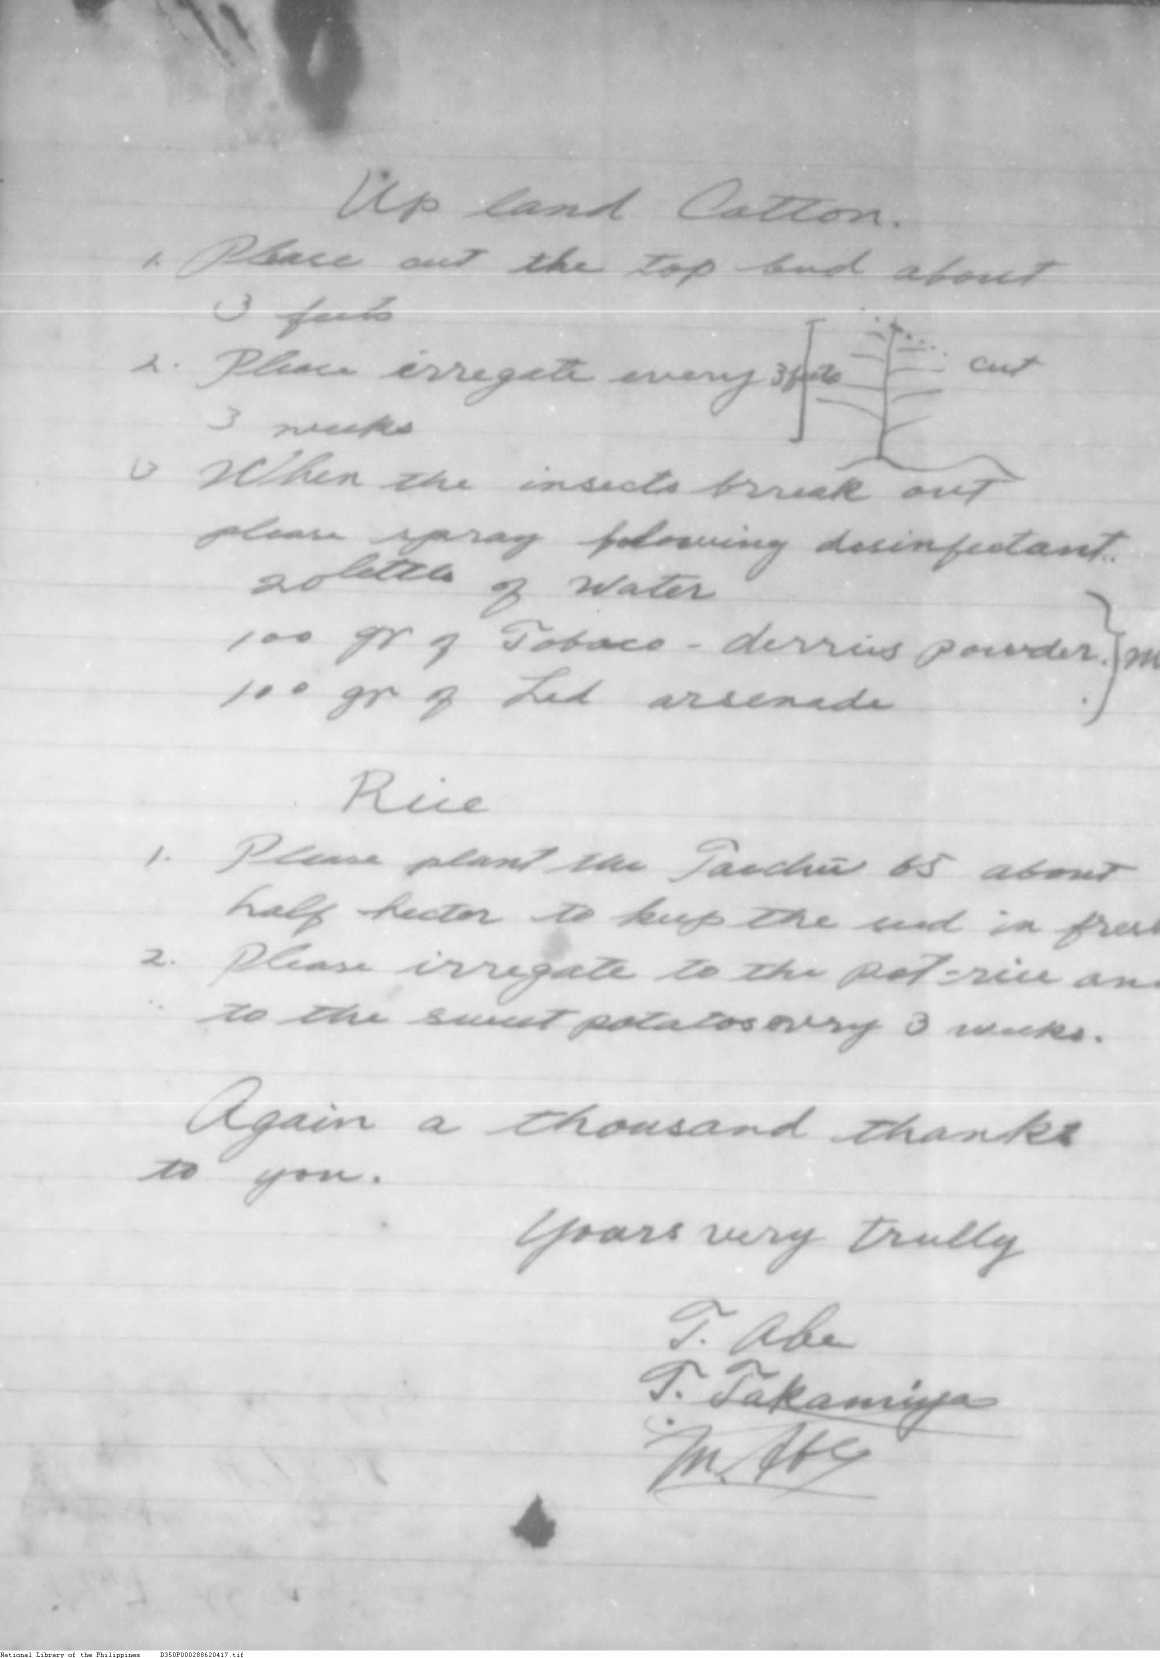 Up land Cotton.
1. Please cut the top bud about
3 feets
2. Please irregate every
3 feets
cut
3 weeks
3 When the insects brreak out
please spray folowing desinfectant..
20 litels of water
100 gr of Tobaco - derris powder.
100 gr of Led arsenade
Rice
1. Please plant the Taichu 65 about
half hector to keep the seed in
2. Please irregate to the pot-rice
to the sweet potatos evry 3 weeks.
Again a thousand thanks
to you.
Yoars very trully
T. Abe
T. Takamiya
M. Abe
National Library of the Philippines D350P000288620417.tif